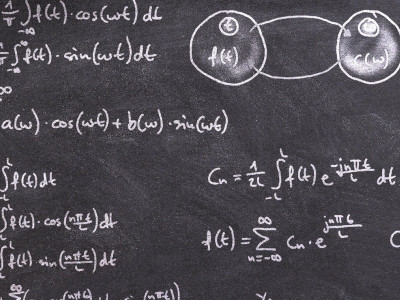 1/π ∫_{-∞}^{∞} f(t)·cos(ωt) dt
1/π ∫_{-∞}^{∞} f(t)·sin(ωt) dt
t
f(t)
ω
c(ω)
∞
a(ω)·cos(ωt)+b(ω)·sin(ωt)
∫_{-L}^{L} f(t) dt
∫_{-L}^{L} f(t)·cos(nπt/L) dt
∫_{-L}^{L} f(t) sin(nπt/L) dt
Cn = 1/2L ∫_{-L}^{L} f(t) e^{-jnπt/L} dt
f(t) = ∑_{n=-∞}^{∞} Cn·e^{jnπt/L}
C